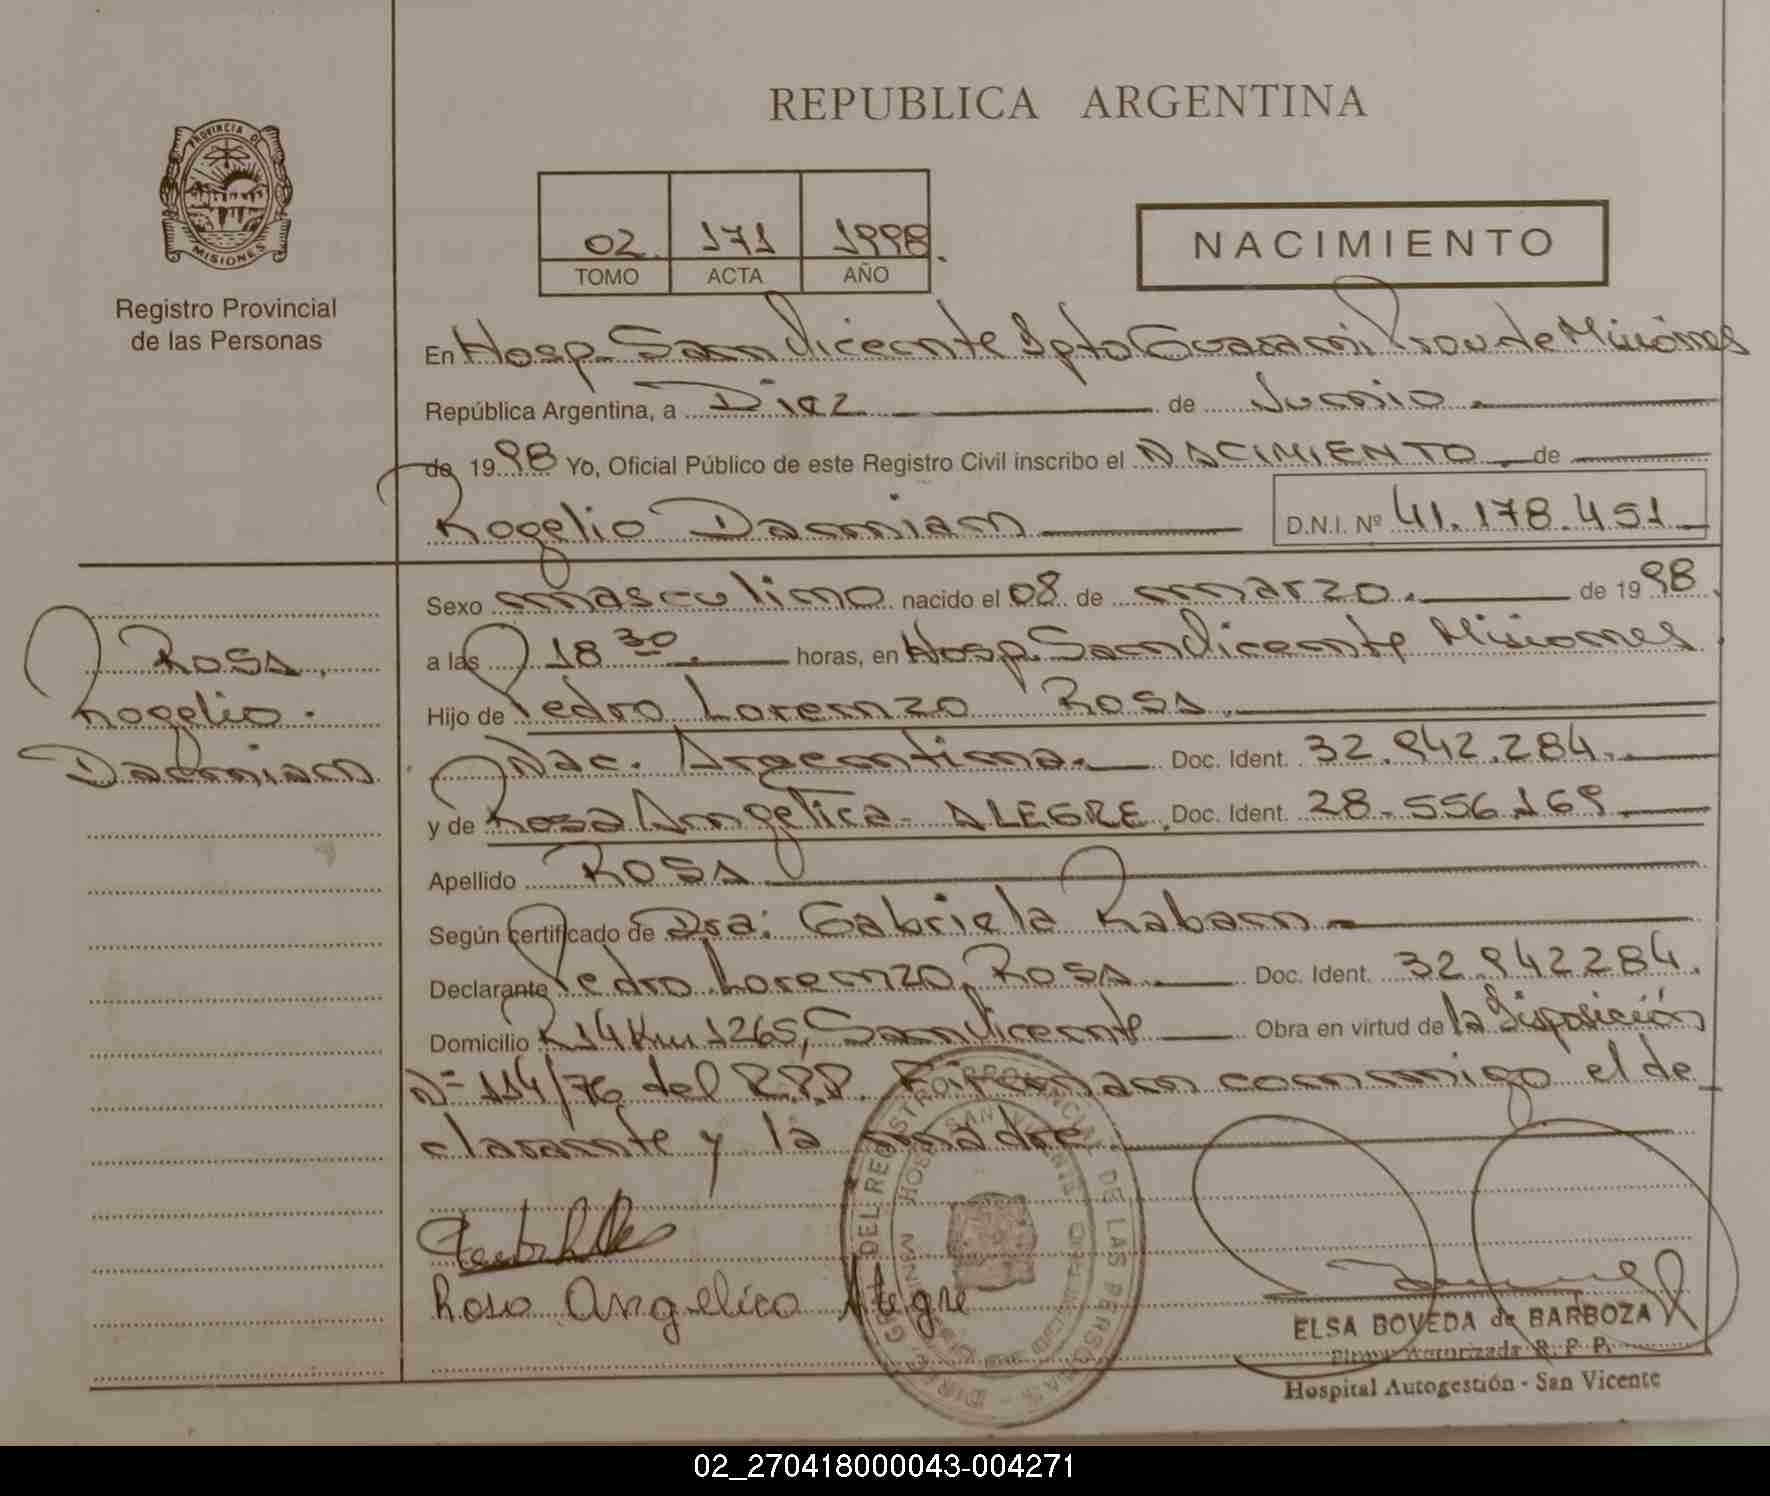 REPUBLICA ARGENTINA
PROVINCIA DE
MISIONES
Registro Provincial
de las Personas
02. 171 1998.
TOMO ACTA AÑO
NACIMIENTO
En Hosp. San Vicente Dpto Guarani Prov de Misiones
República Argentina, a Diez de Junio
de 1998 Yo, Oficial Público de este Registro Civil inscribo el NACIMIENTO de
Rogelio Damian D.N.I. Nº 41.178.451
Sexo masculino nacido el 08 de marzo. de 1998.
a las 18 30. horas, en Hosp. San Vicente Misiones
Hijo de Pedro Lorenzo ROSA
Nac. Argentina. Doc. Ident. 32.942.284.
y de Rosa Angelica ALEGRE. Doc. Ident. 28.556.169.
Apellido ROSA
Según certificado de Dra: Gabriela Raban
Declarante Pedro Lorenzo ROSA Doc. Ident. 32.942284.
Domicilio R14 Km 1265, San Vicente Obra en virtud de la Disposición
Nº 114/76 del R.P.P. Firman conmigo el de-
clarante y la madre.
ROSA,
Rogelio.
Damian
Rosa Angelica Alegre
DEL REGISTRO PROVINCIAL DE LAS PERSONAS
HOSP. SAN VICENTE
ELSA BOVEDA de BARBOZA
Firma Autorizada R. P. P.
Hospital Autogestión - San Vicente
02_270418000043-004271